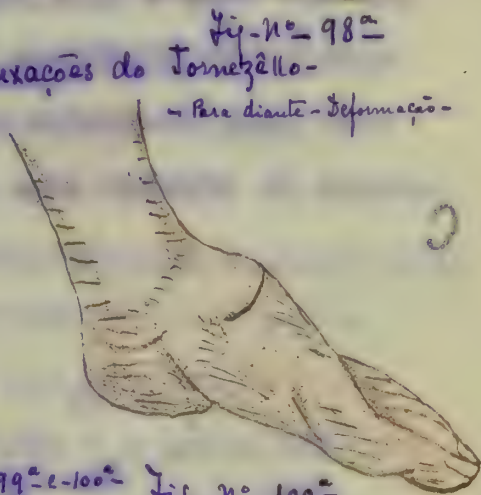 Fig. Nº 98ª
uxações do Tornezêllo-
- Para diante - Deformação -
99ª-e-100ª- Fig. Nº 100ª